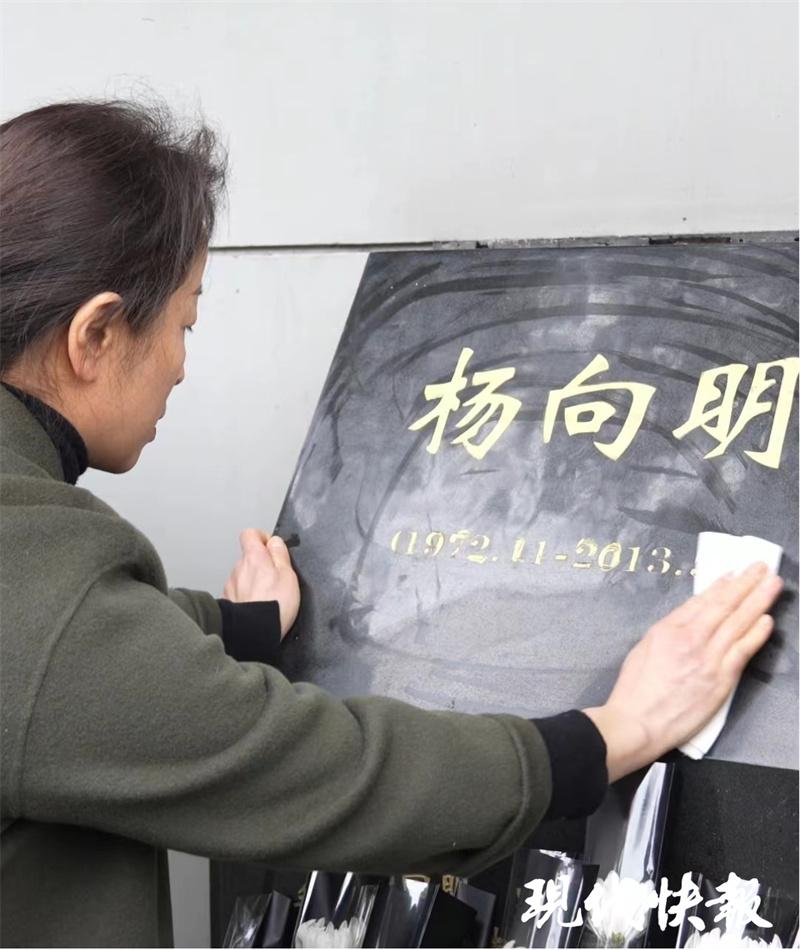 杨向明
(1972.11-2013.
明
现代快报